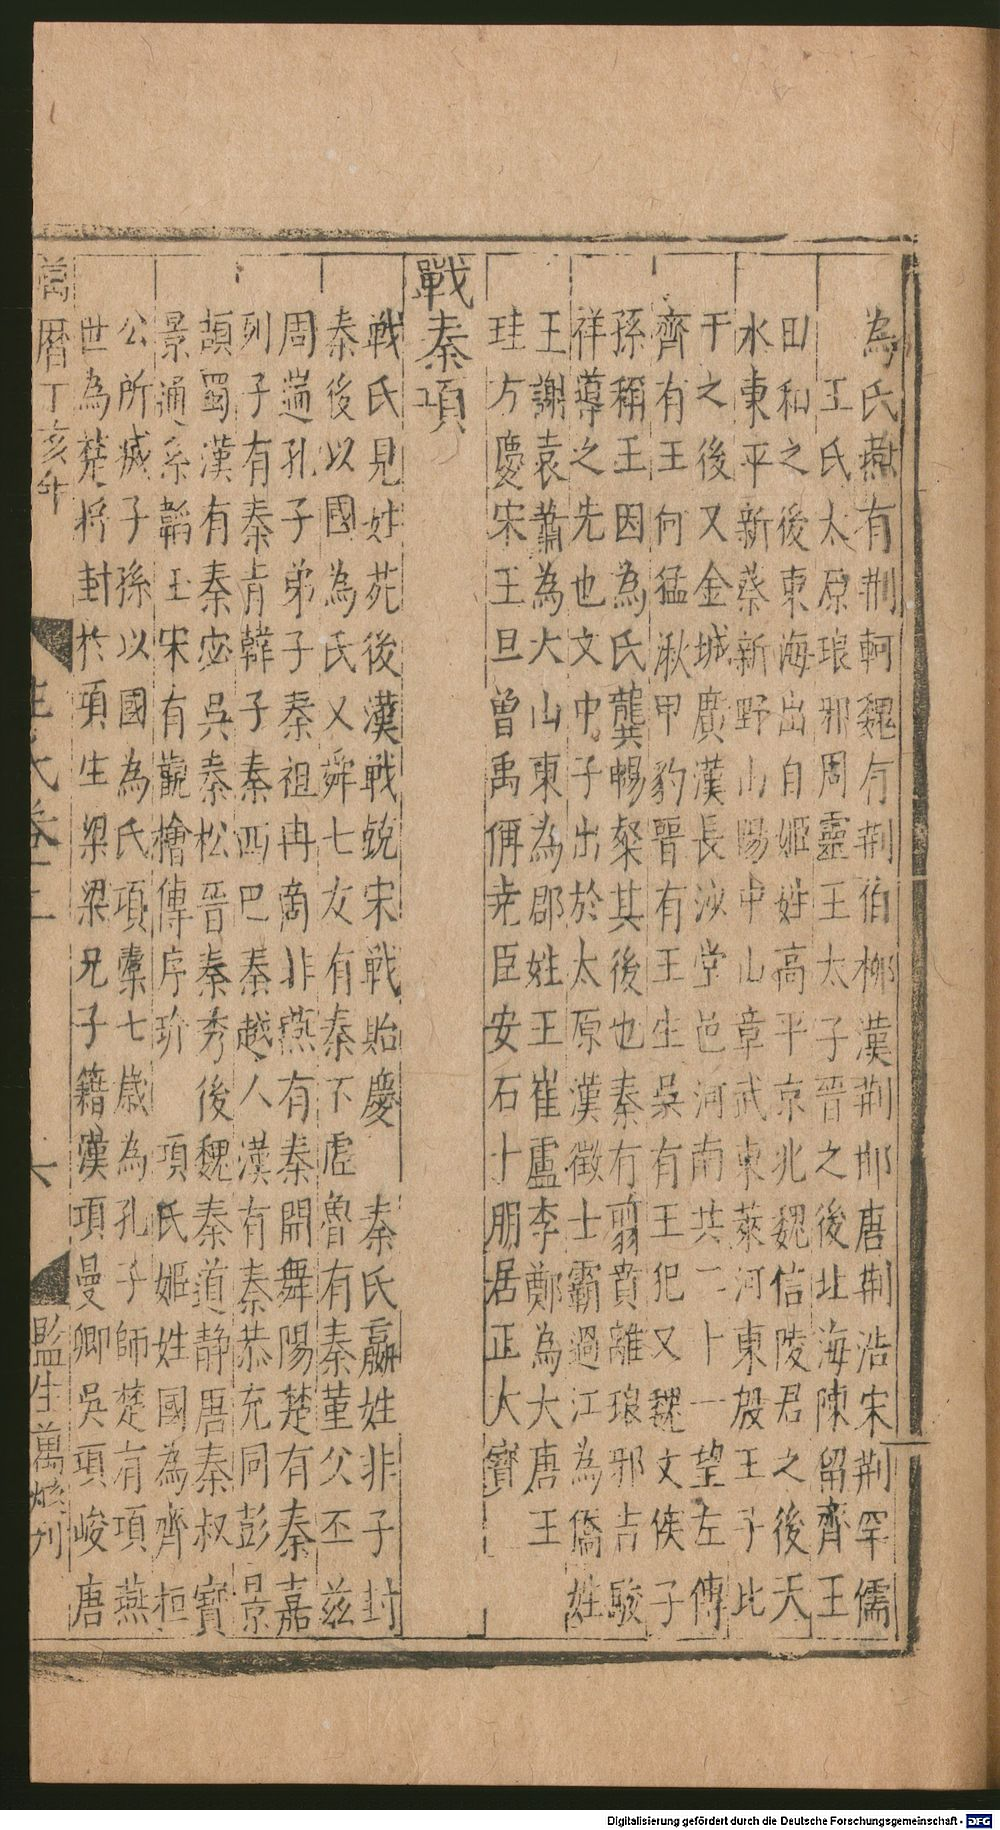 為氏燕有荆軻魏有荆伯柳漢荆邯唐荆浩宋荆罕儒
王氏太原琅邪周靈王太子晉之後北海陳留齊王
田和之後東海出自姬姓高平京兆魏信陵君之後天
水東平新蔡新野山陽中山章武東萊河東殷王子比
干之後又金城廣漢長沙堂邑河南共二十一望左傳
齊有王何猛湫甲豹晉有王生吳有王犯又魏文侯子
孫稱王因為氏龔暢粲其後也秦有翦賁離琅邪吉駿
祥導之先也文中子出於太原漢徵士霸過江為僑姓
王謝袁蕭為大山東為郡姓王崔盧李鄭為大唐王
珪方慶宋王旦曾禹偁尭臣安石十朋居正大寶
戰秦項
戰氏見姓苑後漢戰兢宋戰貽慶 秦氏嬴姓非子封
秦後以國為氏又舜七友有秦不虛魯有秦董父丕兹
周遄孔子弟子秦祖冉啇非燕有秦開舞陽楚有秦嘉
列子有秦青韓子秦西巴秦越人漢有秦恭充同彭景
頡蜀漢有秦宓吳秦松晉秦秀後魏秦道静唐秦叔寳
景通系韜玉宋有觀檜傳序玠 項氏姬姓國為齊桓
公所滅子孫以國為氏項橐七歲為孔子師楚有項燕
世為楚將封於項生梁梁兄子籍漢項曼卿吳項峻唐
萬曆丁亥年
姓氏卷上
六
監生萬 刊
Digitalisierung gefördert durch die Deutsche Forschungsgemeinschaft - DFG